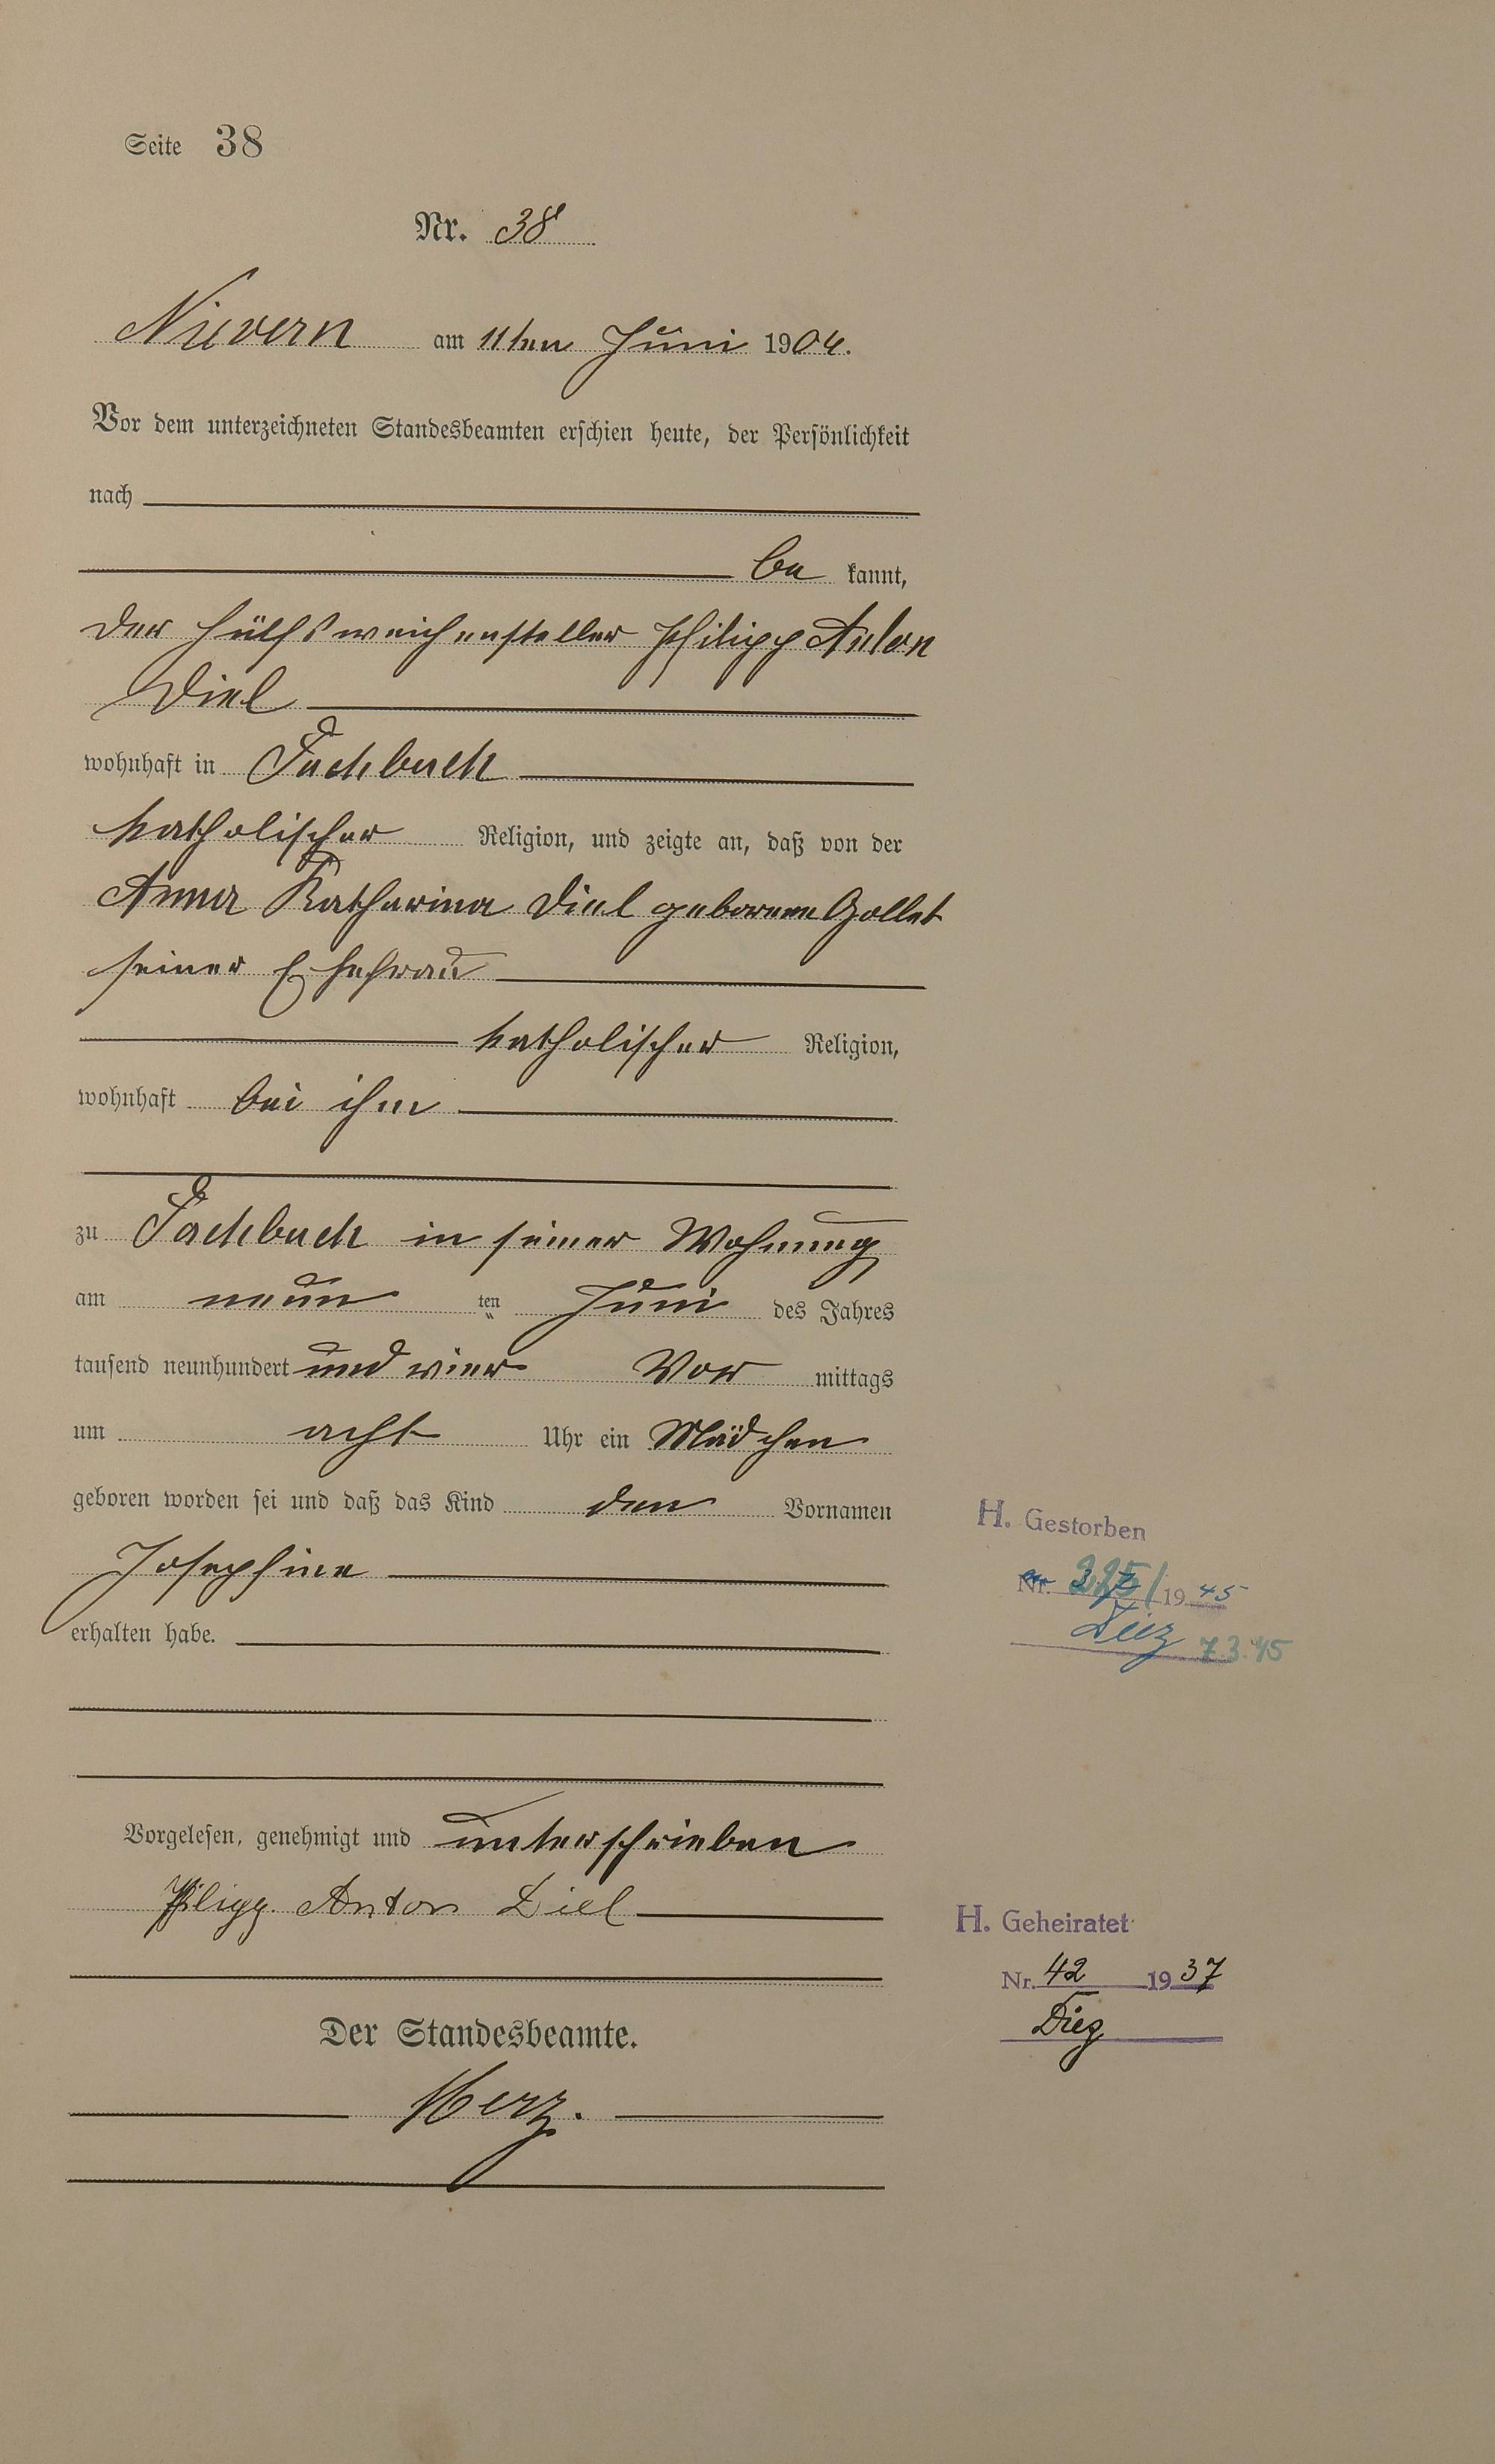 Seite 38
Nr. 38
Nievern am 11ten Juni 1904.
Vor dem unterzeichneten Standesbeamten erschien heute, der Persönlichkeit
nach
be kannt,
der Hülfsweichensteller Philipp Anton
Diel
wohnhaft in Fachbach
katholischer Religion, und zeigte an, daß von der
Anna Katharina Diel geborene Gollet
seiner Ehefrau
katholischer Religion,
wohnhaft bei ihm
zu Fachbach in seiner Wohnung
am neun ten Juni des Jahres
tausend neunhundert und vier Vor mittags
um acht Uhr ein Mädchen
geboren worden sei und daß das Kind den Vornamen
Josephine
erhalten habe.
H. Gestorben
Nr. 1945
Diez 7.3.45
Vorgelesen, genehmigt und unterschrieben
Philipp Anton Diel
H. Geheiratet
Nr. 42 1937
Diez
Der Standesbeamte.
Merz.